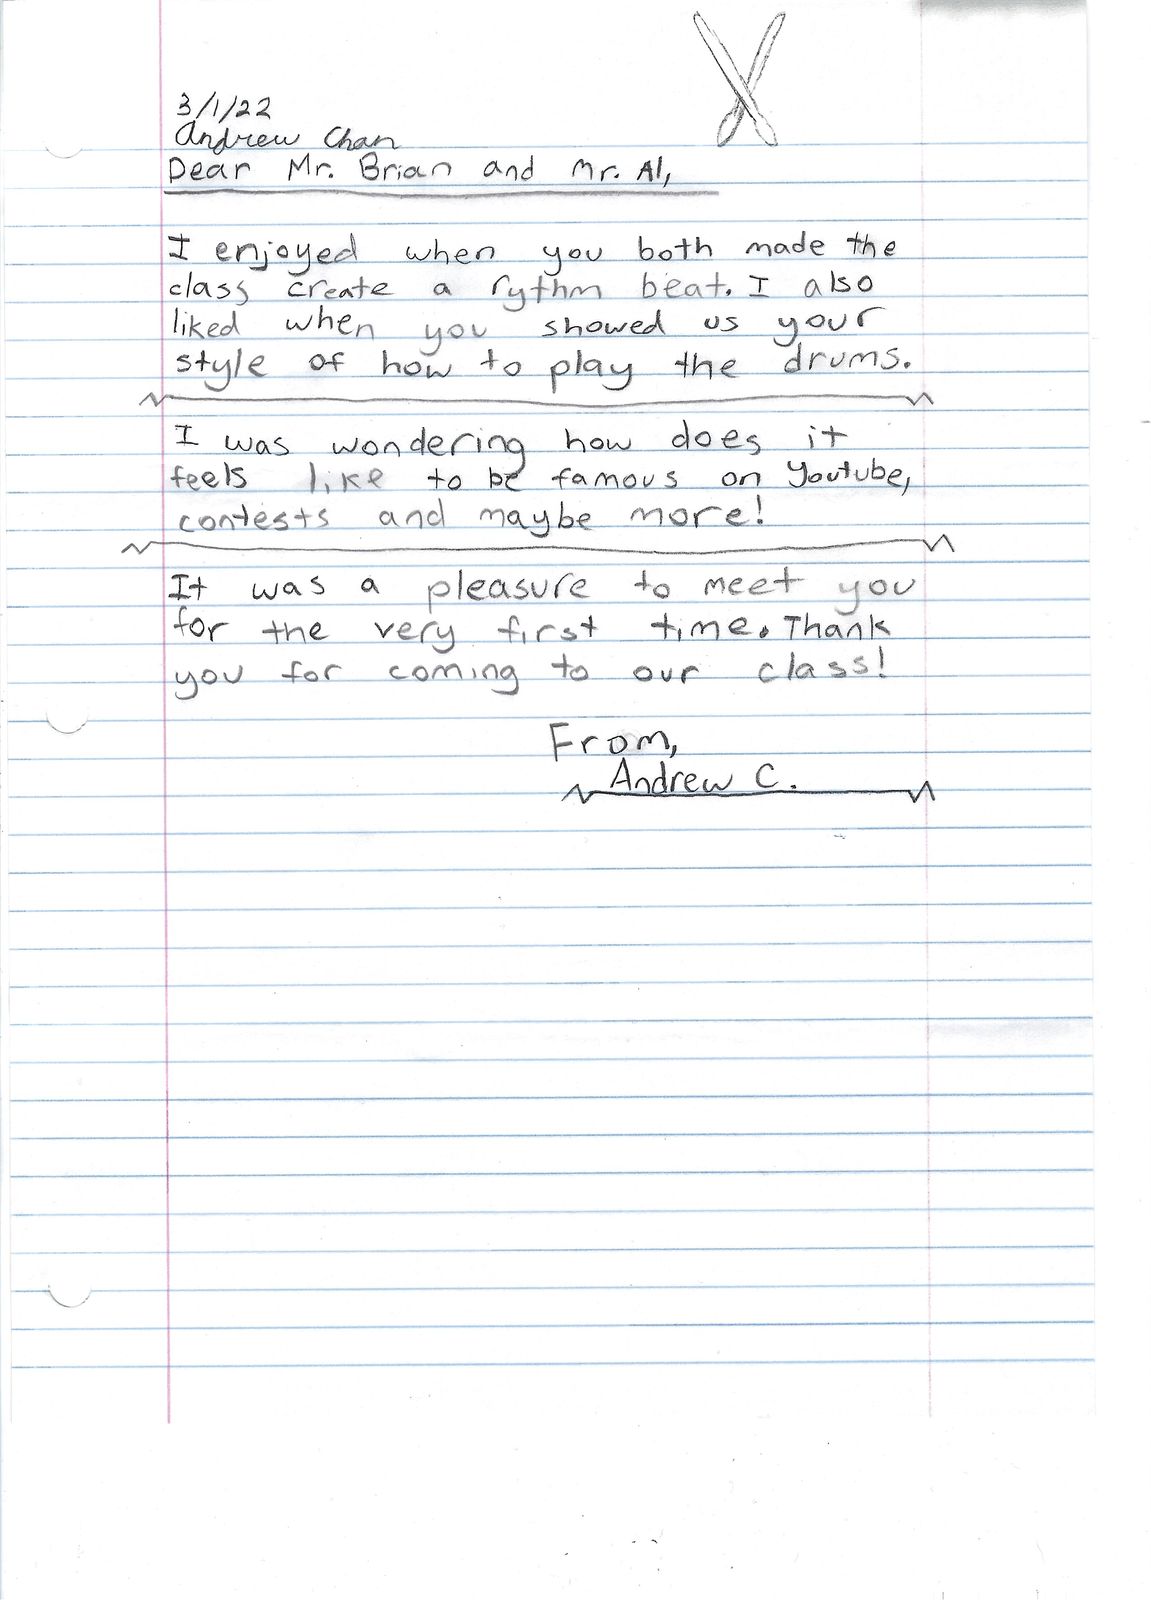 3/1/22
Andrew Chan
Dear Mr. Brian and Mr. Al,
I enjoyed when you both made the
class create a rythm beat. I also
liked when you showed us your
style of how to play the drums.
I was wondering how does it
feels like to be famous on Youtube,
contests and maybe more!
It was a pleasure to meet you
for the very first time. Thank
you for coming to our class!
From,
Andrew C.